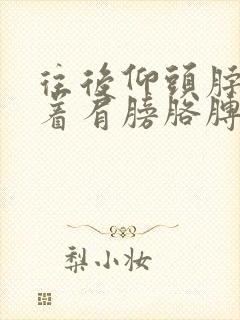 往後仰頭脖
着肩膀胳膊
梨小妆